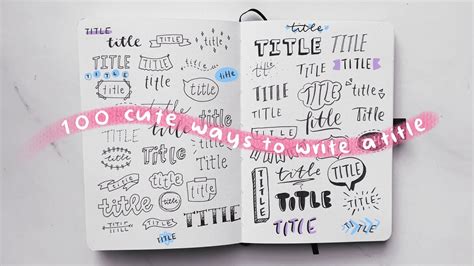 TITLE
title title title
TITLE title title
TITLE title
title title title
title TITLE
100 cute ways to write a title
title TITLE title
title Title title
title title title
title title TITLE
TITLE
TITLE
title
TITLE TITLE
title TITLE
TITLE title
TITLE title TITLE
title title
TITLE title TITLE
TITLE title
TITLE TITLE